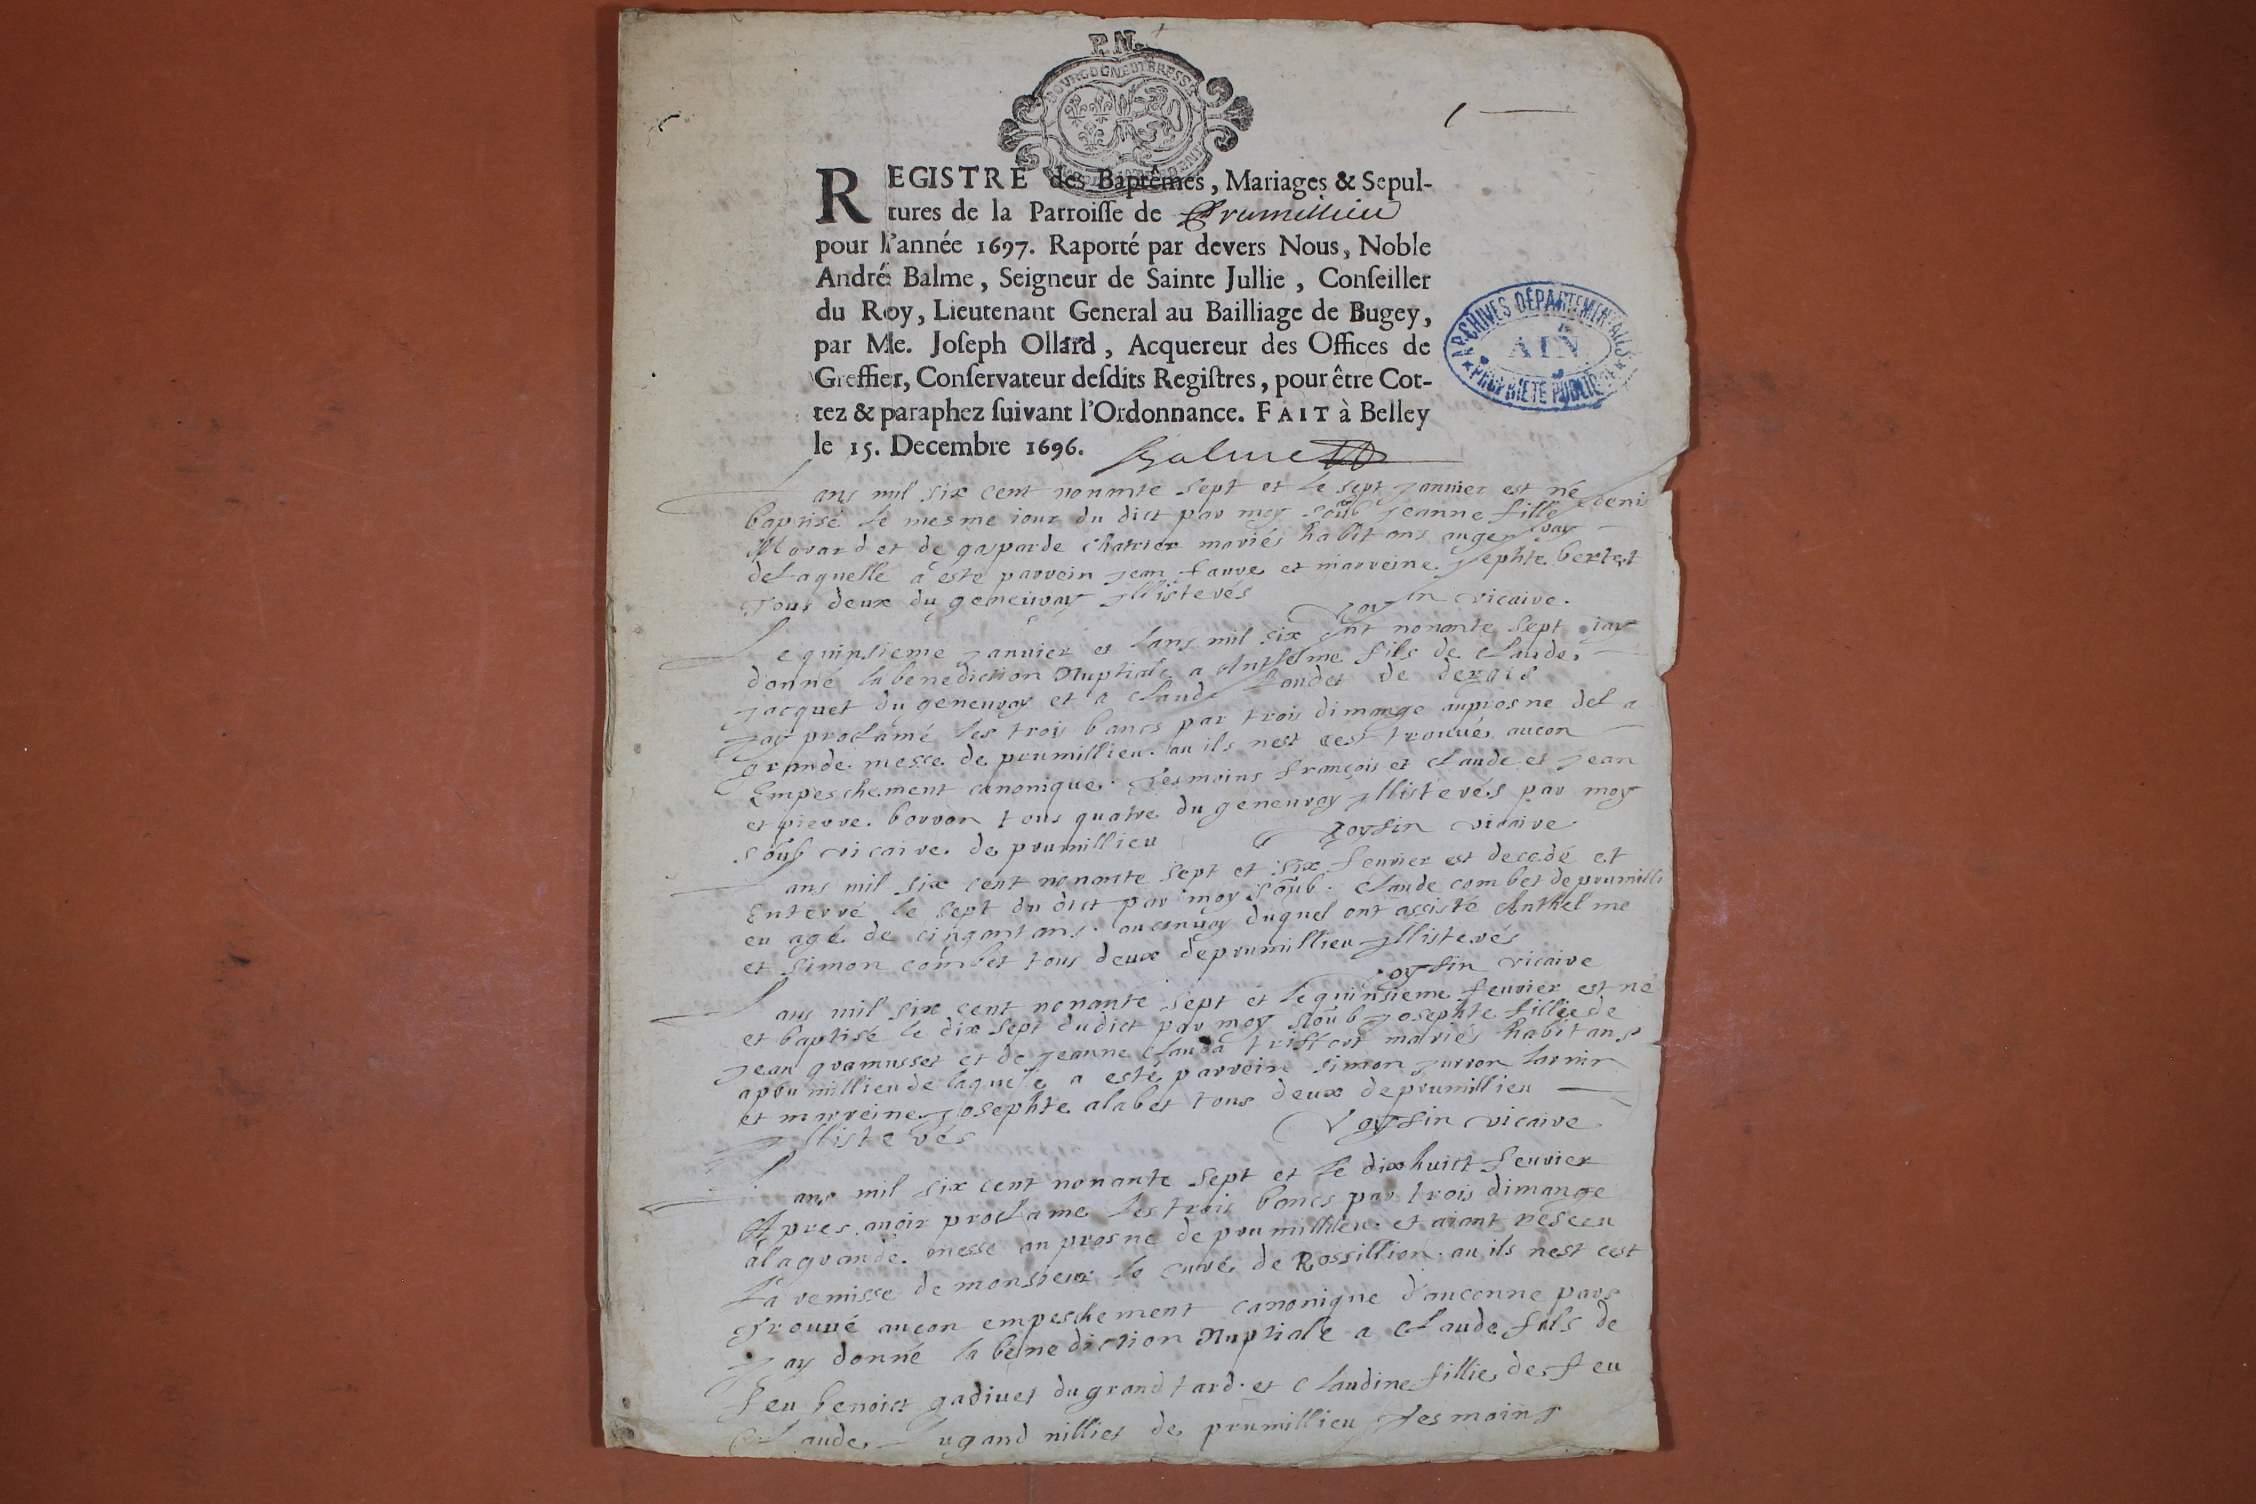 P. N.
BOURGOGNE ET BRESSE
1
REGISTRE des Baptêmes, Mariages & Sepul-
tures de la Parroisse de Prumillieu
pour l'année 1697. Raporté par devers Nous, Noble
André Balme, Seigneur de Sainte Jullie, Conseiller
du Roy, Lieutenant General au Bailliage de Bugey,
par Me. Joseph Ollard, Acquereur des Offices de
Greffier, Conservateur desdits Registres, pour être Cot-
tez & paraphez suivant l'Ordonnance. FAIT à Belley
le 15. Decembre 1696. Balme
ARCHIVES DÉPARTEMENTALES
AIN
PROPRIÉTÉ PUBLIQUE
Lans mil six cent nonante sept et le sept janvier est né
baptisé le mesme iour du dict par moy soub jeanne fille denis
Morard et de gasparde mariés habitans
delaquelle a este parrein jean favre et marreine jephte bertet
Tous deux du geneuray jllisterés
Voysin vicaire.
Le quinsieme janvier et lans mil six cent nonante sept jay
donné la benediction Nuptiale a Anthelme fils de claude
jacquet du geneuray et a claude de
jay proclamé les trois bancs par trois dimange auprosne dela
grande messe de prumillieu. au ils nest cest trouué aucon
Empeschement canonique. Tesmoins françois et claude et jean
et pierre. borron tous quatre du geneuray jllisterés par moy
soub vicaire de prumillieu Voysin vicaire
Lans mil six cent nonante sept et six feuvier est decedé et
Enterré le sept du dict par moy soub. claude combet de prumilli
eu agé de cinqant ans. au conuoy duquel ont assisté Anthelme
et simon combet tous deux de prumillieu jllisterés
Voysin vicaire
Lans mil six cent nonante sept et le quinsieme feuvier est né
et baptisé le dix sept dudict par moy soub josephte fillie de
jean gramusset et de jeanne clauda mariés habitans
a prumillieu de laquelle a este parrein simon
et marreine josephte alabet tous deux de prumillieu
jllisterés Voysin vicaire
Lans mil six cent nonante sept et le dix huict feuvier
Apres auoir proclamé les trois bancs par trois dimange
a la grande. messe au prosne de prumillieu. et aiant resceu
la remisse de monsieur le curé de Rossillion. au ils nest cest
trouué aucon empeschement canonique d'auconne pars
jay donné la benediction Nuptiale a claude fils de
feu benoict gadiuet du grand tard. et claudine fillie de feu
claude lugand nillies de prumillieu Tesmoins